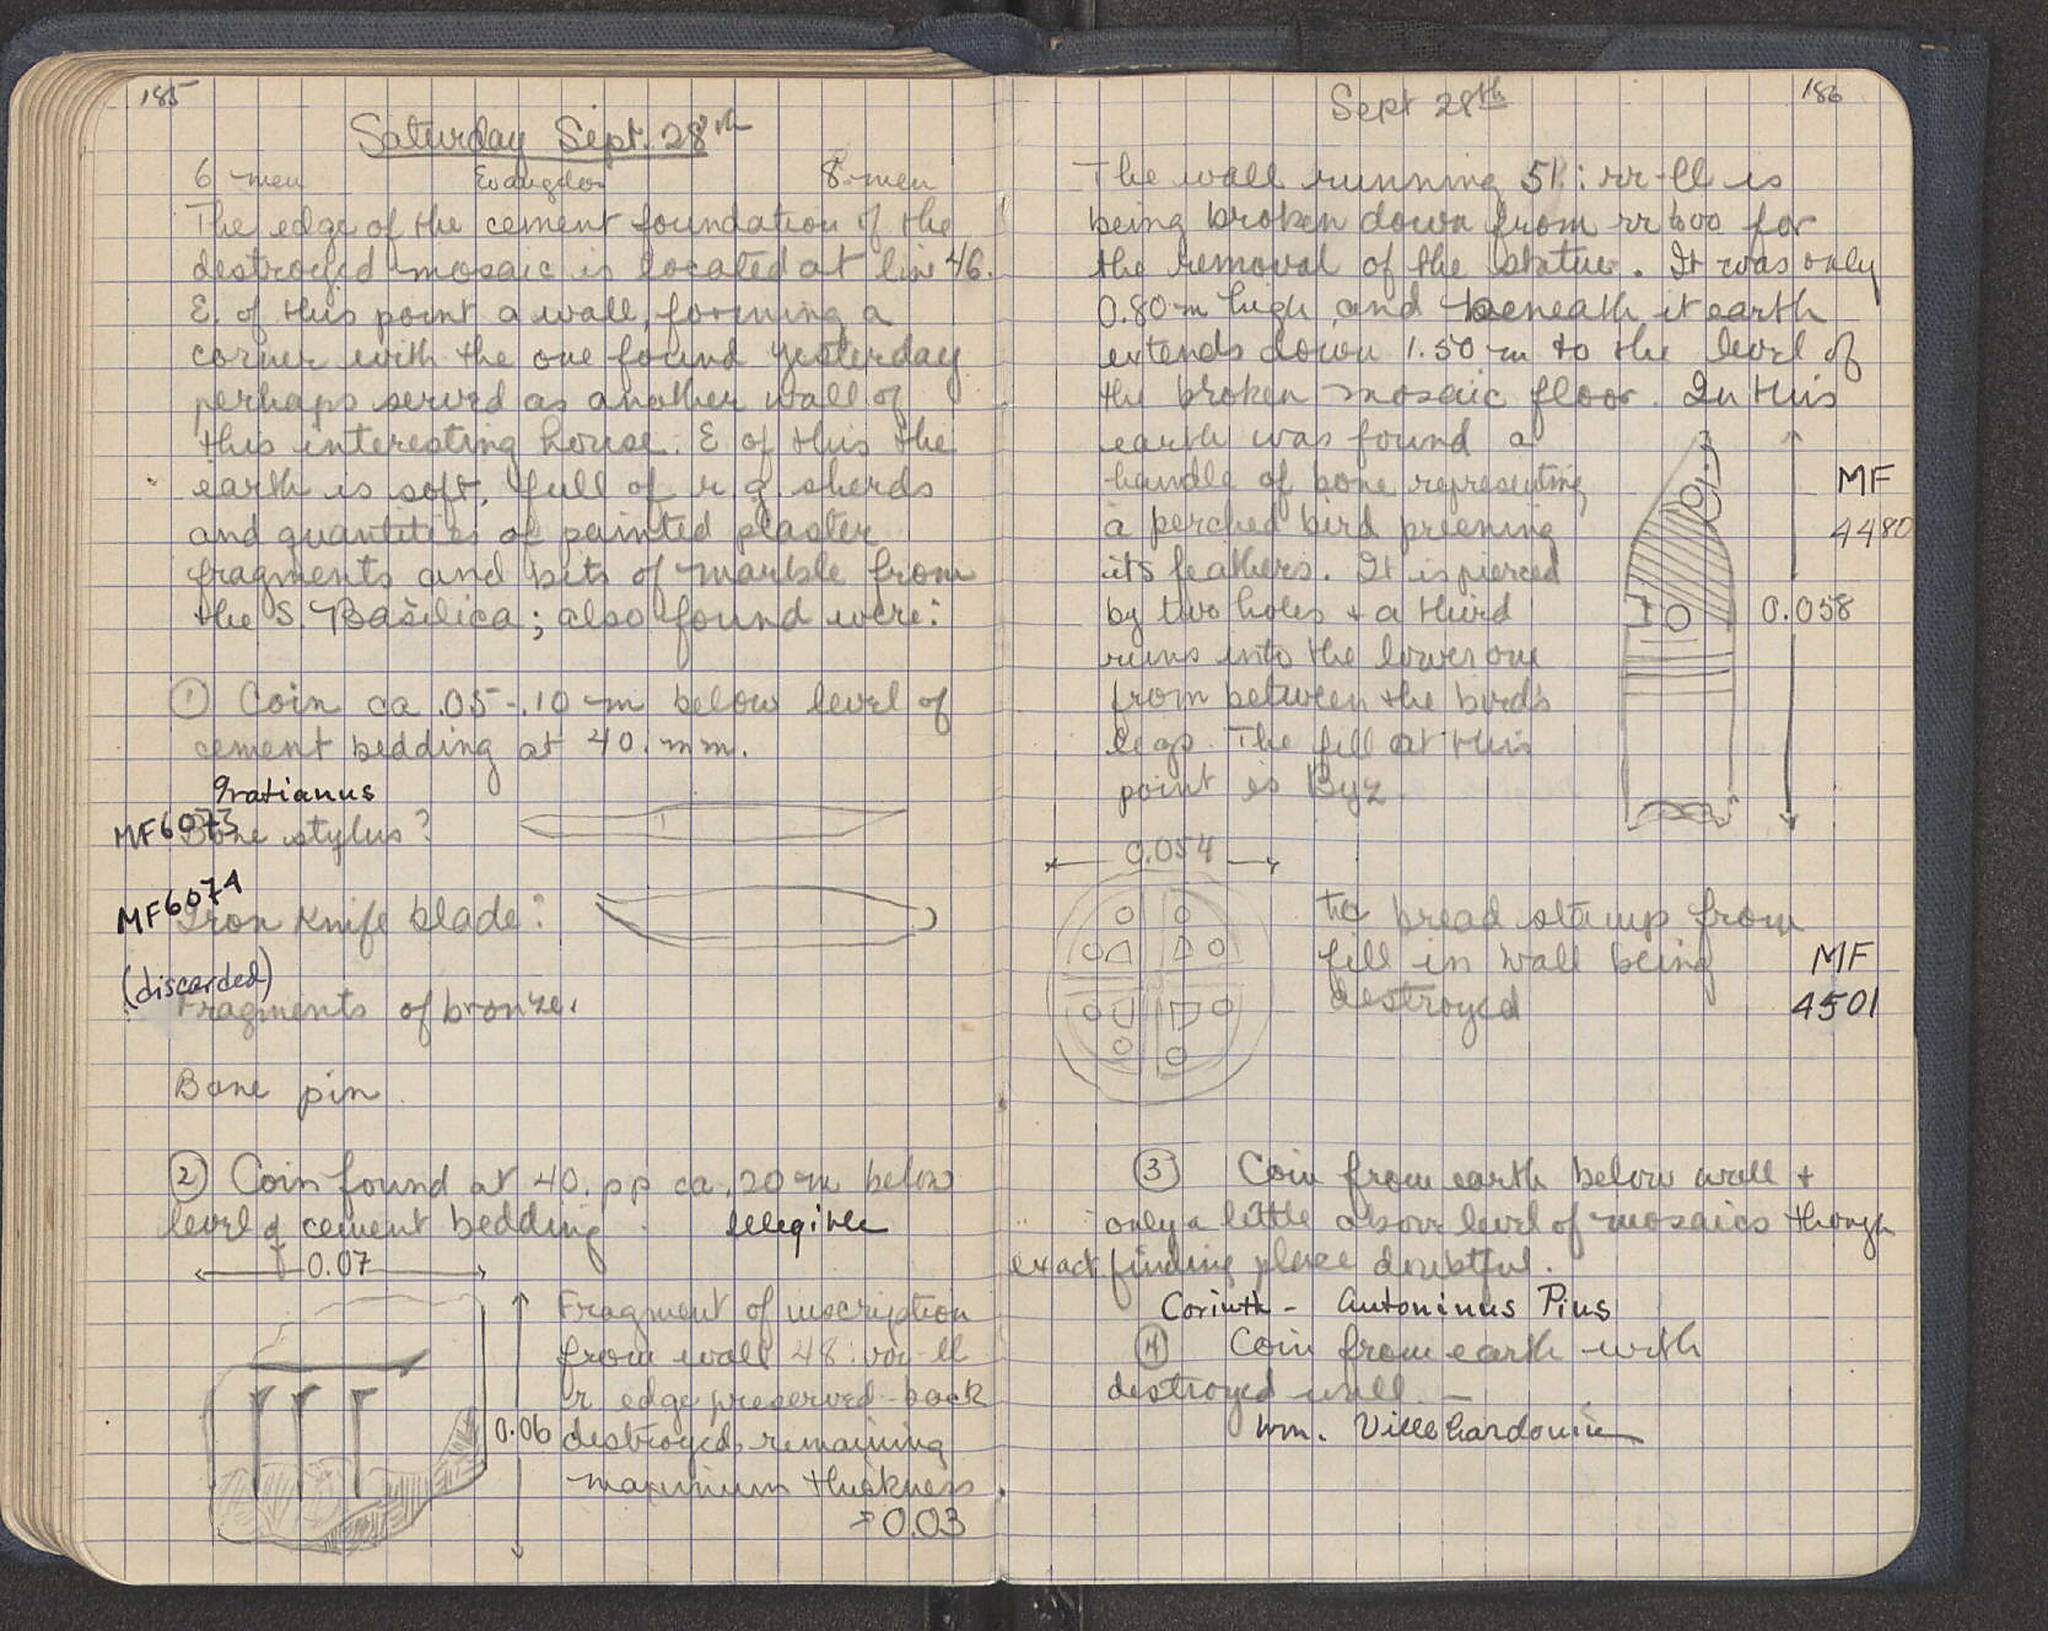 185
Saturday Sept. 28th
6 men Evangelos 8 men
The edge of the cement foundation of the
destroyed mosaic is located at line 46.
E. of this point a wall, forming a
corner with the one found yesterday
perhaps served as another wall of
this interesting house. E of this the
earth is soft, full of r g. sherds
and quantities of painted plaster
fragments and bits of marble from
the S. Basilica; also found were:
① Coin ca .05-.10 m below level of
cement bedding at 40. mm.
Gratianus
MF6073
Bone stylus?
MF6074
Iron Knife blade?
(discarded)
Fragments of bronze.
Bone pin.
② Coin found at 40. pp ca .20 m below
level of cement bedding. Illegible
0.07
Fragment of inscription
from wall 48: ll
r edge preserved - back
0.06 destroyed, remaining
maximum thickness
= 0.03
186
Sept 28th
The wall running 51: rr-ll is
being broken down from rr to oo for
the removal of the statue. It was only
0.80 m high, and beneath it earth
extends down 1.50 m to the level of
the broken mosaic floor. In this
earth was found a
handle of bone representing
a perched bird preening
its feathers. It is pierced
by two holes + a third
runs into the lower one
from between the bird's
legs. The fill at this
point is Byz.
MF
4480
0.058
0.054
tc bread stamp from
fill in wall being
destroyed
MF
4501
③ Coin from earth below wall +
only a little above level of mosaics though
exact finding place doubtful.
Corinth - Antoninus Pius
④ Coin from earth with
destroyed wall -
Wm. Villehardouin